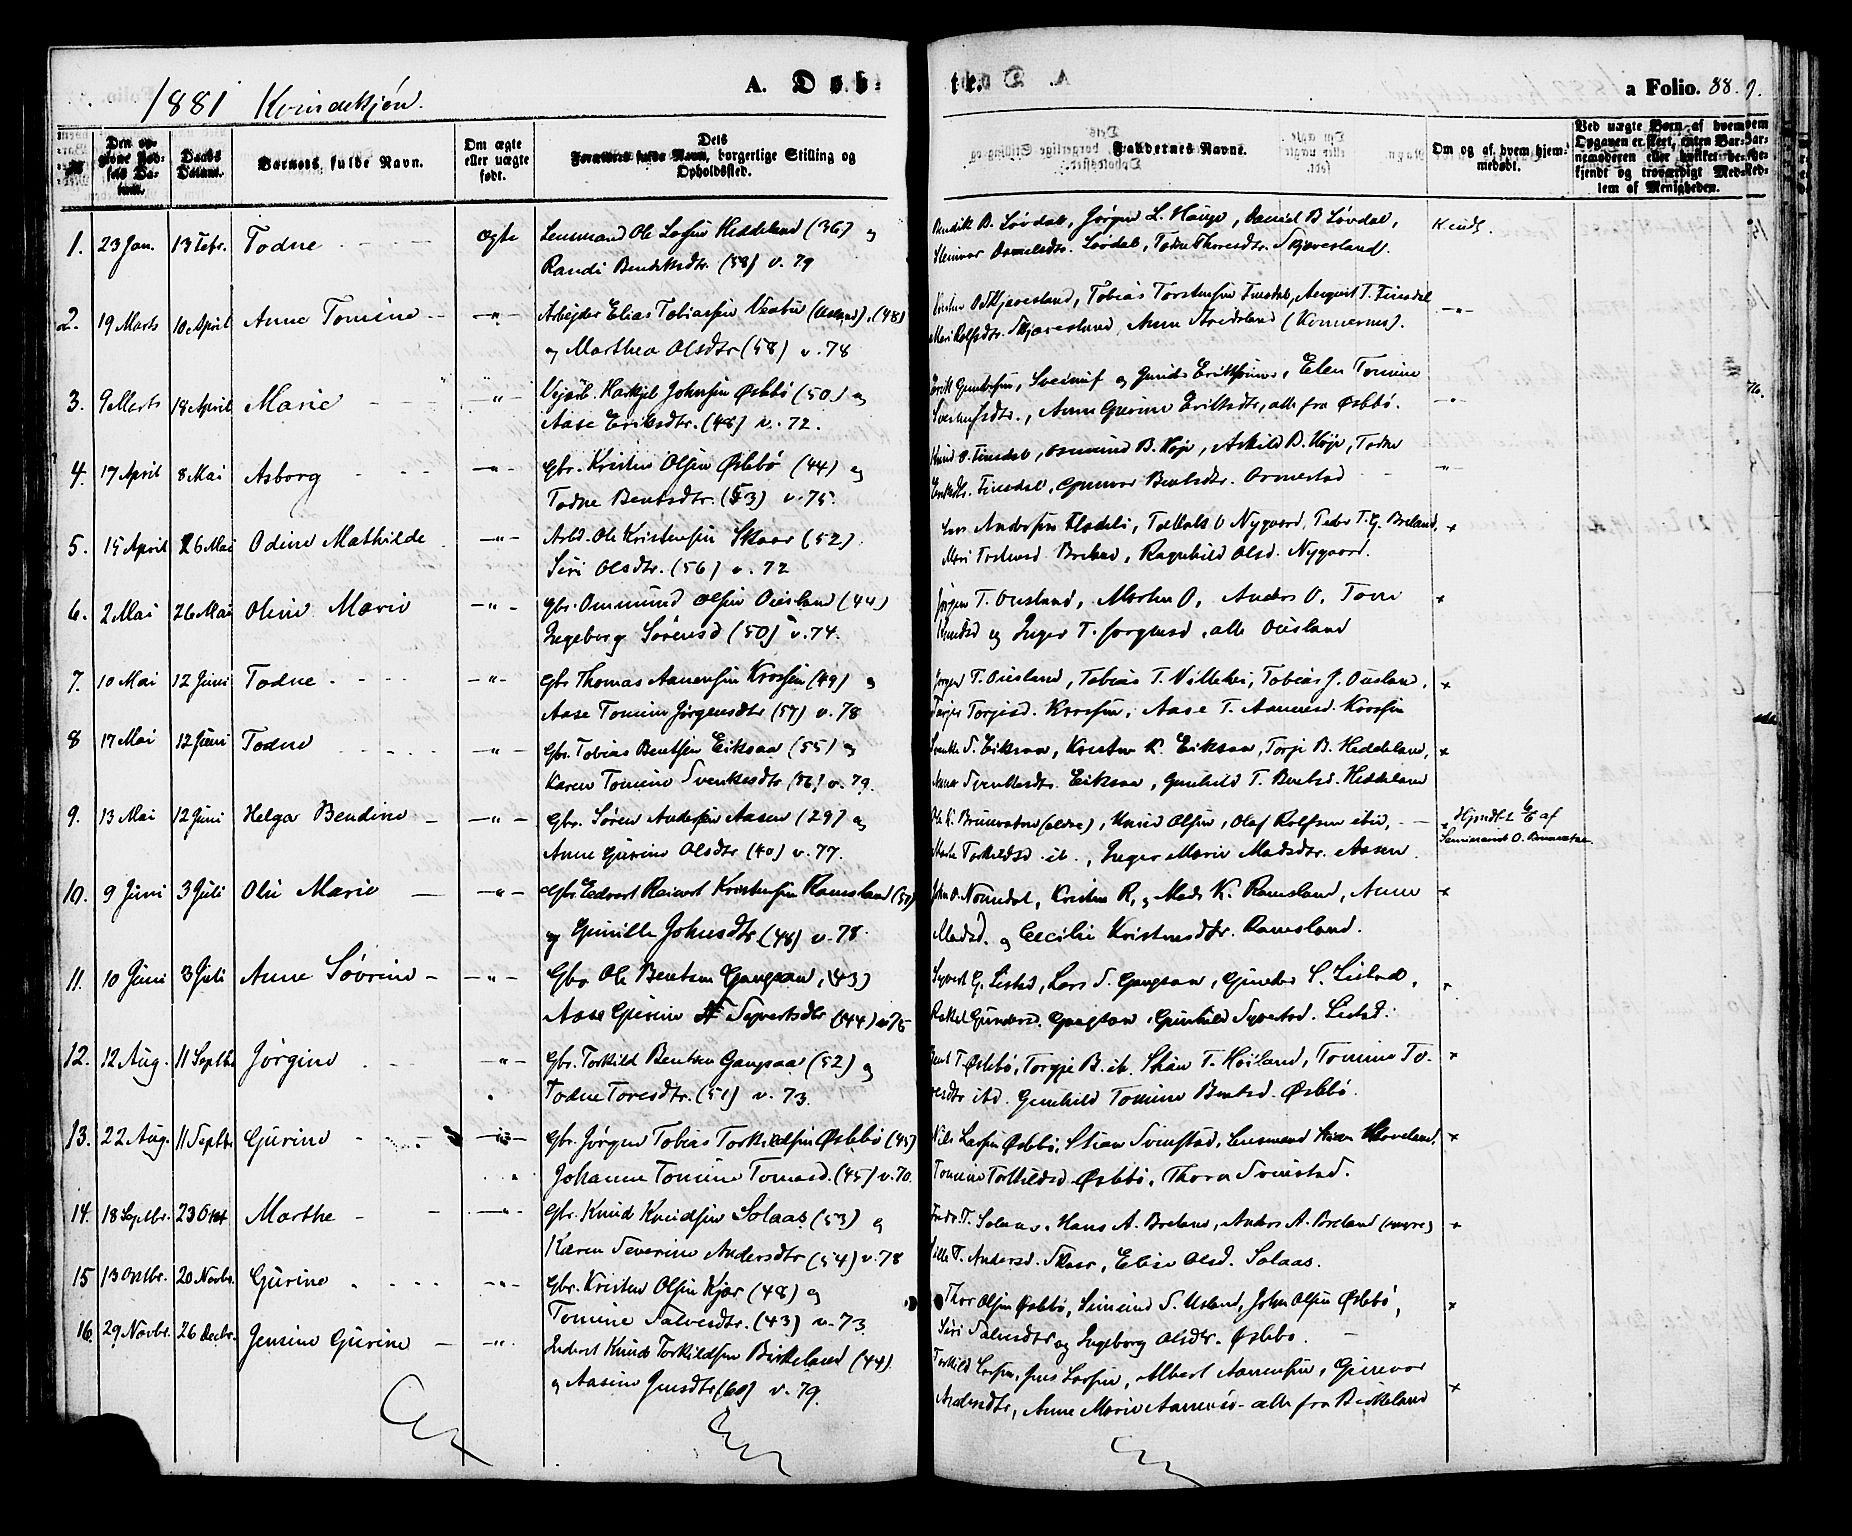 1881 Kvindekjøn.
A. Døb:
te.
a Folio. 88.
Den opgivne Fødsels Datum.
Daabs Datum.
Barnets fulde Navn.
Om ægte eller uægte født.
Dets Forældres fulde Navn, borgerlige Stilling og Opholdssted.
Faddernes Navne.
Om og af hvem hjemmedøbt.
Ved uægte Børn af hvem Opgaven er skeet, enten Barnemoderen eller hvilket bekjendt og troværdigt Medlem af Menigheden.
1. 23 Jan. 13 Febr. Todne ægte Lensmand Ole Larsen Heddeland (36) og
Randi Bendiksdtr. (58) v. 79
Bendik B. Løvdal, Jørgen L. Hauge, Daniel B Løvdal,
Steinvor Danielsdtr. Løvdal, Todne Thoresdtr. Skjævesland.
2. 19 Marts 10 April Anne Tomine —"— Arbejder Elias Tobiassen (48)
og Marthea Olsdtr (58) v. 78
O Skjævesland, Tobias Torstensen Finsdal, August T. Finsdal
Mari Rolfsdtr. Skjævesland, Anna
3. 9 Marts 18 April Marie —"— Johnsen Øslebø (50) og
Aase Eriksdtr. (48) v. 72.
Erik Gundersen, og Eriksen, Elen Tomine
Anne Gurine Eriksdtr, alle fra Øslebø.
4. 17 April 8 Mai Asborg —"— Gbr. Kristen Olsen Øslebø (44) og
Todne Bentsdtr. (53) v. 75.
Knud O. Finsdal, Osmund B. Høje, Askild B. Høje, Todne
Eriksdtr. Finsdal, Gunvor Bentsdtr. Ormestad
5. 15 April 26 Mai Odine Mathilde —"— Arbd. Ole Kristensen Skaar (52)
Siri Olsdtr. (56) v. 72
Lars Andersen O Nygaard, Peder T. G. Breland,
Mari Breland, Ragnhild Olsd. Nygaard.
6. 2 Mai 26 Mai Oline Marie —"— Gbr. Ommund Olsen Ousland (44)
Ingeborg Sørensd (50) v. 74.
Jørgen T. Ousland, Morten O, Anders O, Tone
Knudsd og Inger T. Jørgensd, alle Ousland
7. 10 Mai 12 Juni Todne —"— Gbr Thomas Aanensen Krossen (49) og
Aase Tomine Jørgensdtr (57) v. 78
Jørgen T. Ousland, Tobias T. Tobias J. Ousland,
Krossen, Aase T. Aanensd. Krossen
8 17 Mai 12 Juni Todne —"— Gbr. Tobias Bentsen Eiksaa (55) og
Karen Tomine Svenkesdtr (56) v. 79.
Svenke S. Eiksaa, Kristen K. Eiksaa, Torje B. Heddeland,
Anna Svenkesdtr. Eiksaa, Gunhild T. Bentsd. Heddeland
9. 13 Mai 12 Juni Helga Bendine —"— Gbr. Søren Andersen Aasen (29) og
Anne Gurine Olsdtr (40) v. 77.
Ole K. Brunvatne (ældre), Knud Olsen, Olaf Rolfsen ibid,
Marte Torkildsd ib., Inger Marie Madsdtr. Aasen
Hjmdt. af
Seminarist O. Brunvatne
10. 9 Juni 3 Juli Oli Marie —"— Gbr. Edvart Reinert Kristensen Ramsland (50)
og Gunille Johnsdtr (48) v. 78.
John O. Nomedal, Kristen R, og Mads K. Ramsland, Anne
Madsd. og Cecilie Kristensdtr. Ramsland.
11. 10 Juni 3 Juli Anne Søvrine —"— Gbr Ole Bentsen Gangsaa, (43)
Aase Gurine Syvertsdtr (44) v. 75
Syvert G. Listad, Lars S. Gangsaa, Gunder S. Listad,
Rakel Gundersd. Gangsaa, Gunhild Syvertsd. Listad.
12. 12 Aug. 11 Septbr Jørgine —"— Gbr. Torkild Bentsen Gangsaa (52) og
Todne Toresdtr. (51) v. 73.
Bent T. Øslebø, Torgje B. ib. Stian T. Høiland, Tomine To-
resdtr ibd. Gunhild Tomine Bentsd. Øslebø.
13. 22 Aug. 11 Septbr Gurine —"— Gbr. Jørgen Tobias Torkildsen Øslebø (45)
Johanne Tomine Tomasd. (45) v. 70.
Nils Larsen Øslebø, Stian Svinstad, Lensmand Hoveland,
Tomine Torkildsd Øslebø, Thora Svinstad.
14. 18 Septbr. 23 Okt Marthe —"— Gbr. Knud Knudsen Solaas (53) og
Karen Severine Andersdtr (54) v. 78
T. Solaas, Hans A. Breland, Anders A. Breland
T. Andersd. Skaar, Elise Olsd. Solaas.
15 13 Octbr. 20 Novbr. Gurine —"— Gbr. Kristen Olsen Kjær (48) og
Tomine Salvesdtr. (43) v. 73
Thor Olsen Øslebø, Simund S. Usland, John Olsen Øslebø,
Siri Salvesdtr og Ingeborg Olsdtr. Øslebø.
16. 29 Novbr. 26 Decbr. Jensine Gurine —"— Inderst Knud Torkildsen Birkeland (44)
og Aasine Jensdtr (60) v. 79.
Torkild Larsen, Jens Larsen, Albert Aanensen, Gunvor
Andersdtr, Anne Marie Aanensd alle fra Birkeland